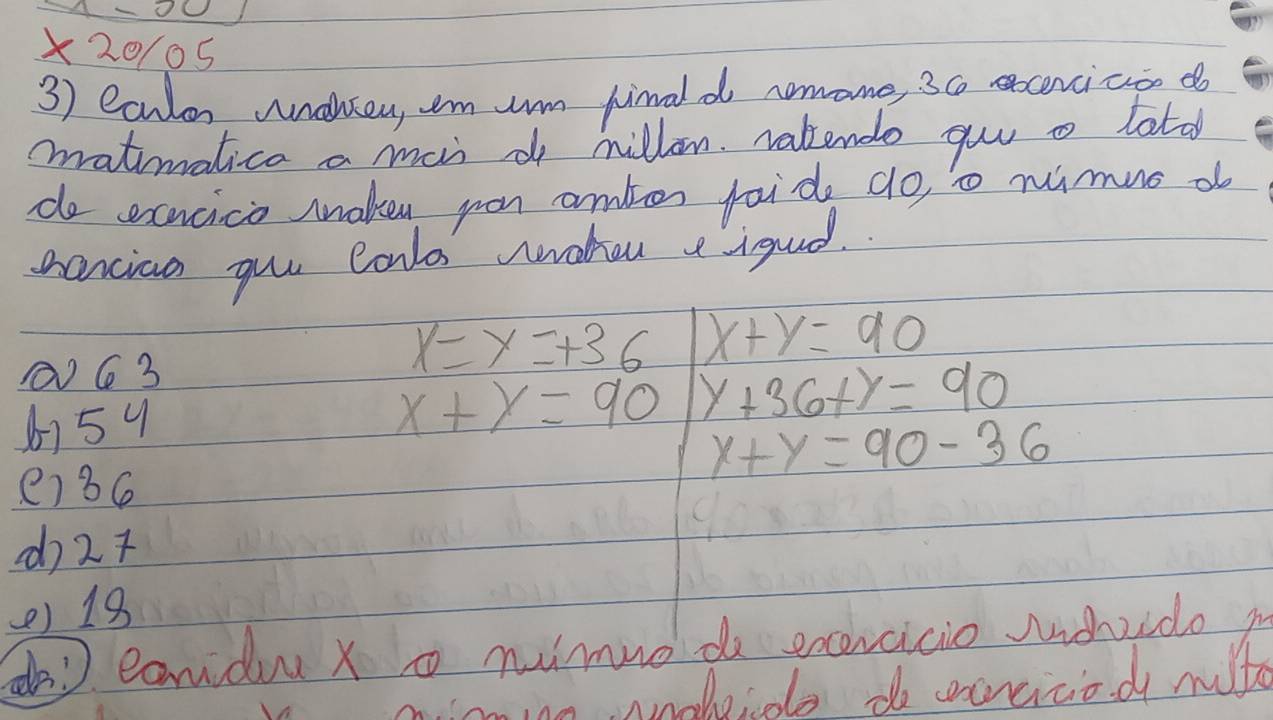 x 20/05
3) Carlos resolveu, em um final de semana, 36 exercicios de
matimatica a mais de nillon. sabendo que o total
de exercicio resolveu por ambos foi de 90, o número de
que Carlos resolveu e igual.
a) 63
b) 54
c) 36
d) 27
e) 18
X = Y = +36
X + Y = 90
X + Y = 90
Y + 36 + Y = 90
Y + Y = 90 - 36
X o número de exercicio
de exercicio de